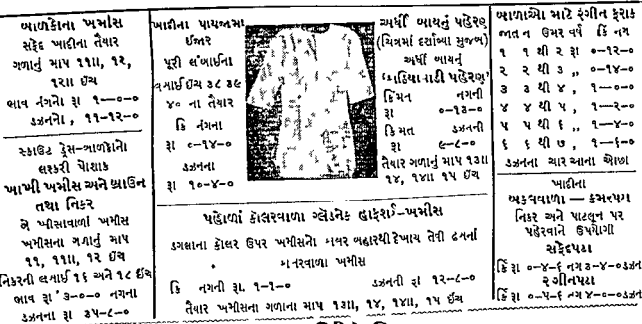 બાળકોના ખમીસ
સફેદ ખાદીના તૈયાર
ગળાનું માપ ૧૧ાા, ૧૨,
૧૨ાા ઈંચ
ભાવ નંગનો રૂા ૧—૦—૦
ડઝનનો , ૧૧-૧૨-૦
સ્કાઉટ ડ્રેસ-બાળકોનો
લશ્કરી પોશાક
ખાખી ખમીસ અને બ્રાઉન
તથા નિકર
બે ખીસાવાળાં ખમીસ
ખમીસના ગળાનું માપ
૧૧, ૧૧ાા, ૧૨ ઈંચ
નિકરની લંબાઈ ૧૬ અને ૧૮ ઈંચ
ભાવ રૂા ૩-૦-૦ નગના
ડઝનના રૂા ૩૫-૮-૦
ખાદીના પાયજામા
ઈજાર
પૂરી લંબાઈના
લંબાઈ ઈંચ ૩૮ ૩૯
૪૦ ના તૈયાર
કિં નંગના
રૂા ૦-૧૪-૦
ડઝનના
રૂા ૧૦-૪-૦
અર્ધી બાયનું પહેરણ
(ચિત્રમાં દર્શાવ્યા મુજબ)
અર્ધી બાયનું
પહેરણ
કિંમત નગની
રૂા ૦-૧૩-૦
કિંમત ડઝનની
રૂા ૯-૮-૦
તૈયાર ગળાનું માપ ૧૩ાા
૧૪, ૧૪ાા ૧૫ ઈંચ
પહોળાં કૉલરવાળા ગ્લેડનેક હાફશર્ટ-ખમીસ
ડગલાના કૉલર ઉપર ખમીસનો કૉલર બહારથી દેખાય તેવી ઢબનાં
કૉલરવાળા ખમીસ
કિં નગની રૂા. ૧-૧-૦ ડઝનની રૂા ૧૨-૮-૦
તૈયાર ખમીસના ગળાના માપ ૧૩ાા, ૧૪, ૧૪ાા, ૧૫ ઈંચ
બાળાઓ માટે રંગીન ફરાક
જાતન ઉમર વર્ષ કિં નગ
૧ ૧ થી ૨ રૂા ૦-૧૨-૦
૨ ૨ થી ૩ ,, ૦-૧૪-૦
૩ ૩ થી ૪ , ૧—૦-૦
૪ ૪ થી ૫ , ૧—૨-૦
૫ ૫ થી ૬ ,, ૧—૪-૦
૬ ૬ થી ૭ , ૧—૬-૦
ડઝનના ચાર આના ઓછા
ખાદીના
બકલવાળા — કમરપટા
નિકર અને પાટલૂન પર
પહેરવાને ઉપયોગી
સફેદપટા
કિં રૂા ૦-૪-૬ નગ ૩-૪-૦ડઝન
રંગીનપટા
કિં રૂા ૦-૫-૬ નગ ૪-૦-૦ડઝન